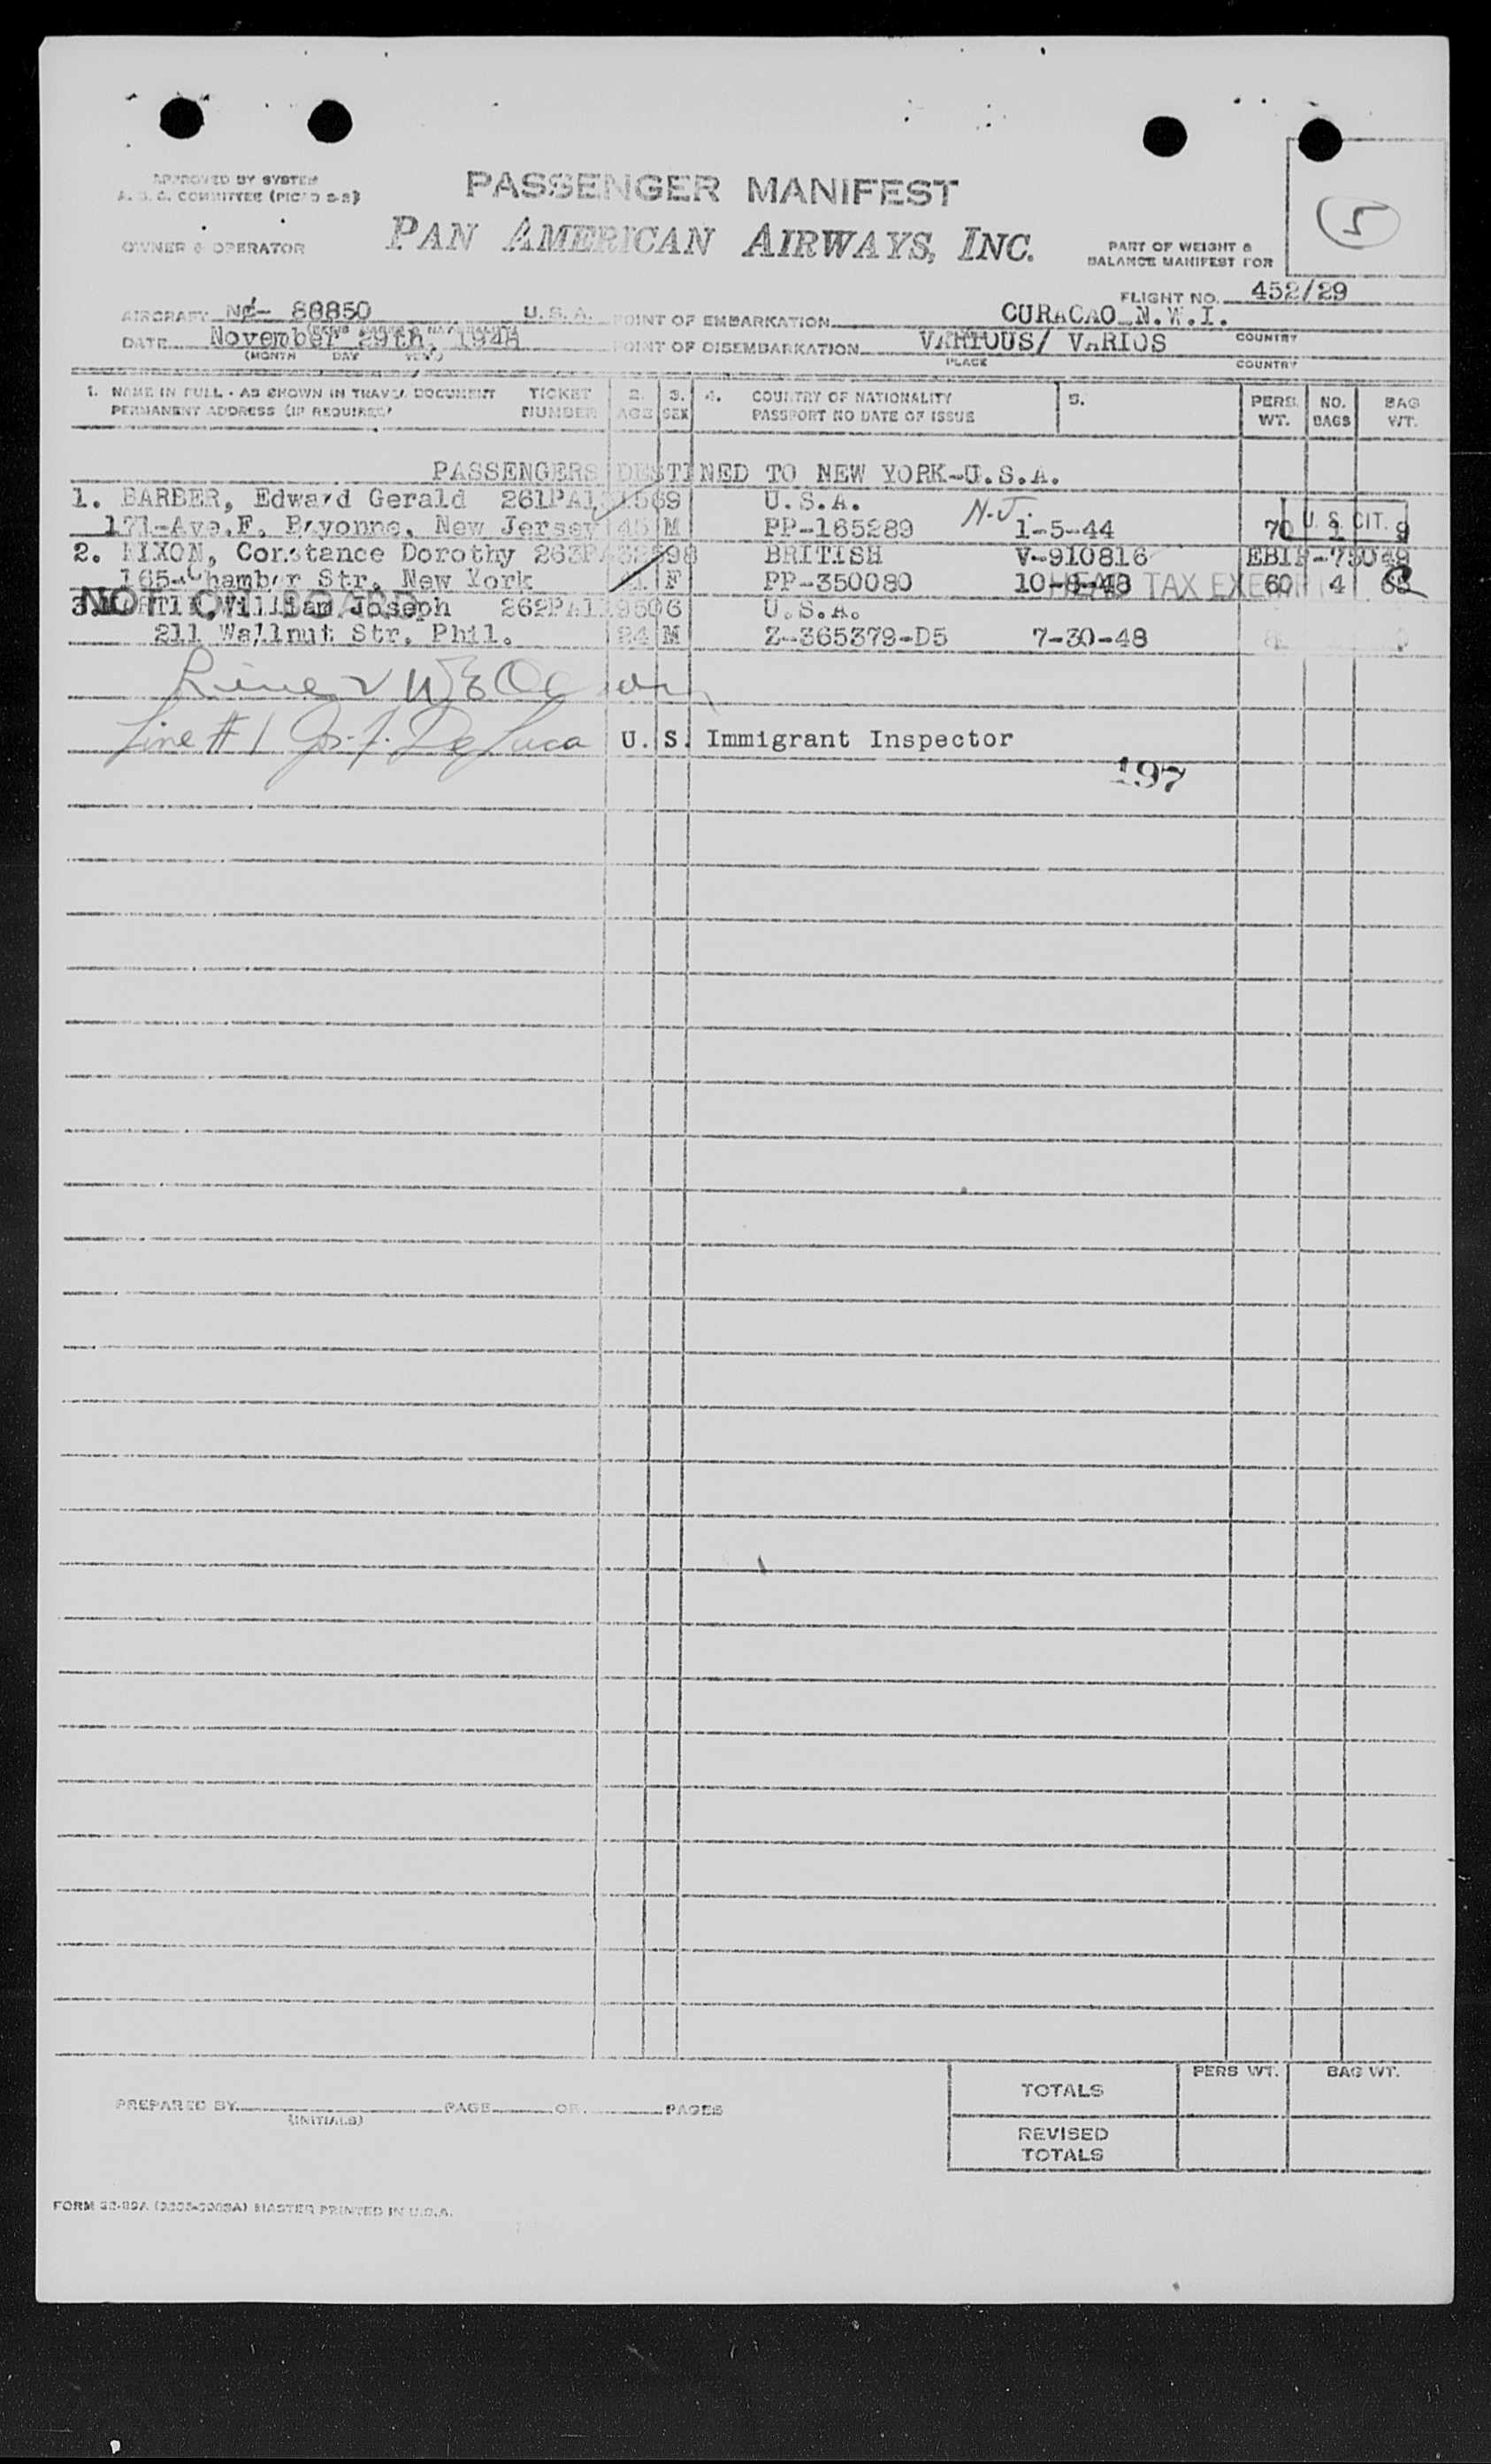 APPROVED BY SYSTEM
PASSENGER MANIFEST
A. B. C. COMMITTEE
5
PAN AMERICAN AIRWAYS, INC.
OWNER & OPERATOR
PART OF WEIGHT &
BALANCE MANIFEST FOR
FLIGHT NO. 452/29
AIRCRAFT 88850 U.S.A. POINT OF EMBARKATION CURACAO N.W.I.
DATE November 29th, 1948 POINT OF DISEMBARKATION VARIOUS/ VARIOS COUNTRY
(MONTH DAY YEAR) PLACE COUNTRY
1. NAME IN FULL - AS SHOWN IN TRAVEL DOCUMENT TICKET 2. 3. 4. COUNTRY OF NATIONALITY 5. PERS. NO. BAG
PERMANENT ADDRESS (IF REQUIRED) NUMBER AGE SEX PASSPORT NO DATE OF ISSUE WT. BAGS WT.
PASSENGERS DESTINED TO NEW YORK-U.S.A.
1. BARBER, Edward Gerald U.S.A. N.J. U. S. CIT.
171-Ave.F. Bayonne, New Jersey 45 M PP-165289 1-5-44 70 1 9
2. NIXON, Constance Dorothy BRITISH V-910816
165-Chamber Str. New York F PP-350080 10-8-48 HEAD TAX EXEMPT 60 4
NOT ON BOARD
3. William Joseph U.S.A.
211 Wallnut Str. Phil. 24 M Z-365379-D5 7-30-48
Line 2
Line # 1 Jos. F. DeLuca U. S. Immigrant Inspector
197
TOTALS PERS WT. BAG WT.
PREPARED BY PAGE OF PAGES
(INITIALS)
REVISED
TOTALS
MASTER PRINTED IN U.S.A.